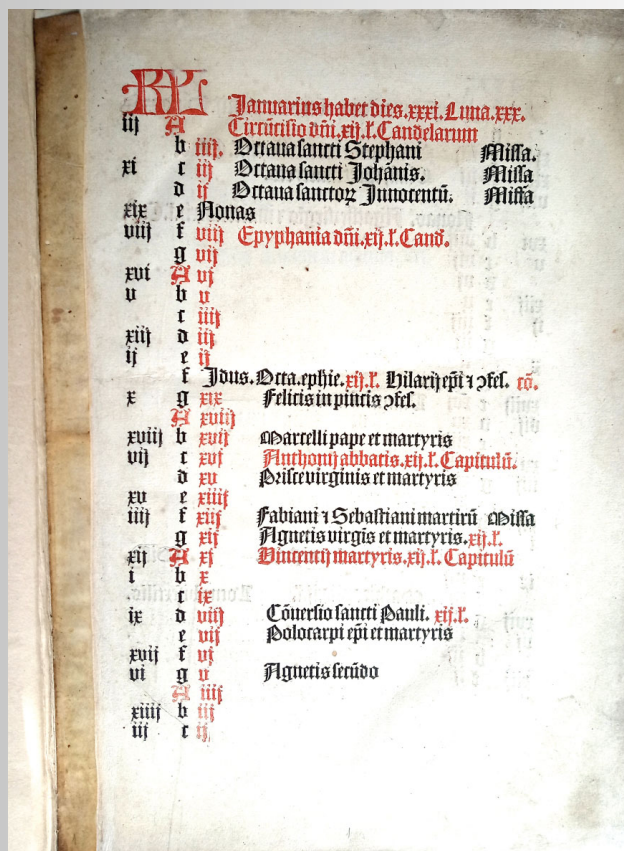 KL Januarius habet dies.xxxi.Luna.xxx.
iij A Circũcisio dñi.xij.ľ.Candelarum
b iiij. Octaua sancti Stephani Missa.
xi c iij Octaua sancti Johãnis. Missa
d ij Octaua sanctoꝝ Innocentũ. Missa
xix e Nonas
viij f viij Epyphania dñi.xij.ľ.Cand̃.
g vij
xvi A vj
v b v
c iiij
xiij d iij
ij e ij
f Jdus.Octa.ephie.xij.ľ. Hilarij ep̃i ⁊ ꝯfes. cõ.
x g xix Felicis in pincis ꝯfes.
A xviij
xviij b xvij Marcelli pape et martyris
vij c xvj Anthonij abbatis.xij.ľ.Capitulũ.
d xv Prisce virginis et martyris
xv e xiiij
iiij f xiij Fabiani ⁊ Sebastiani martirũ Missa
g xij Agnetis virgĩs et martyris.xij.ľ.
xij A xj Vincentij martyris.xij.ľ.Capitulũ
i b x
c ix
ix d viij Cõuersio sancti Pauli. xij.ľ.
e vij Polocarpi ep̃i et martyris
xvij f vj
vi g v Agnetis secũdo
A iiij
xiiij b iij
iij c ij